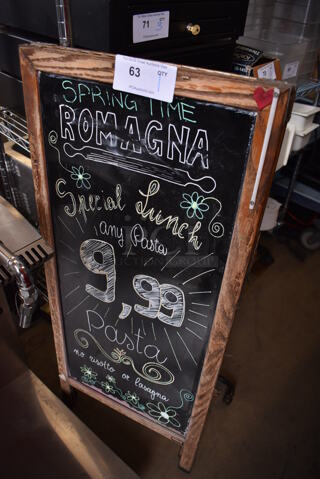 71
QTY
63
QTY
SPRING TIME
ROMAGNA
Special Lunch
any Pasta
9,99
pasta
no risotto or lasagna